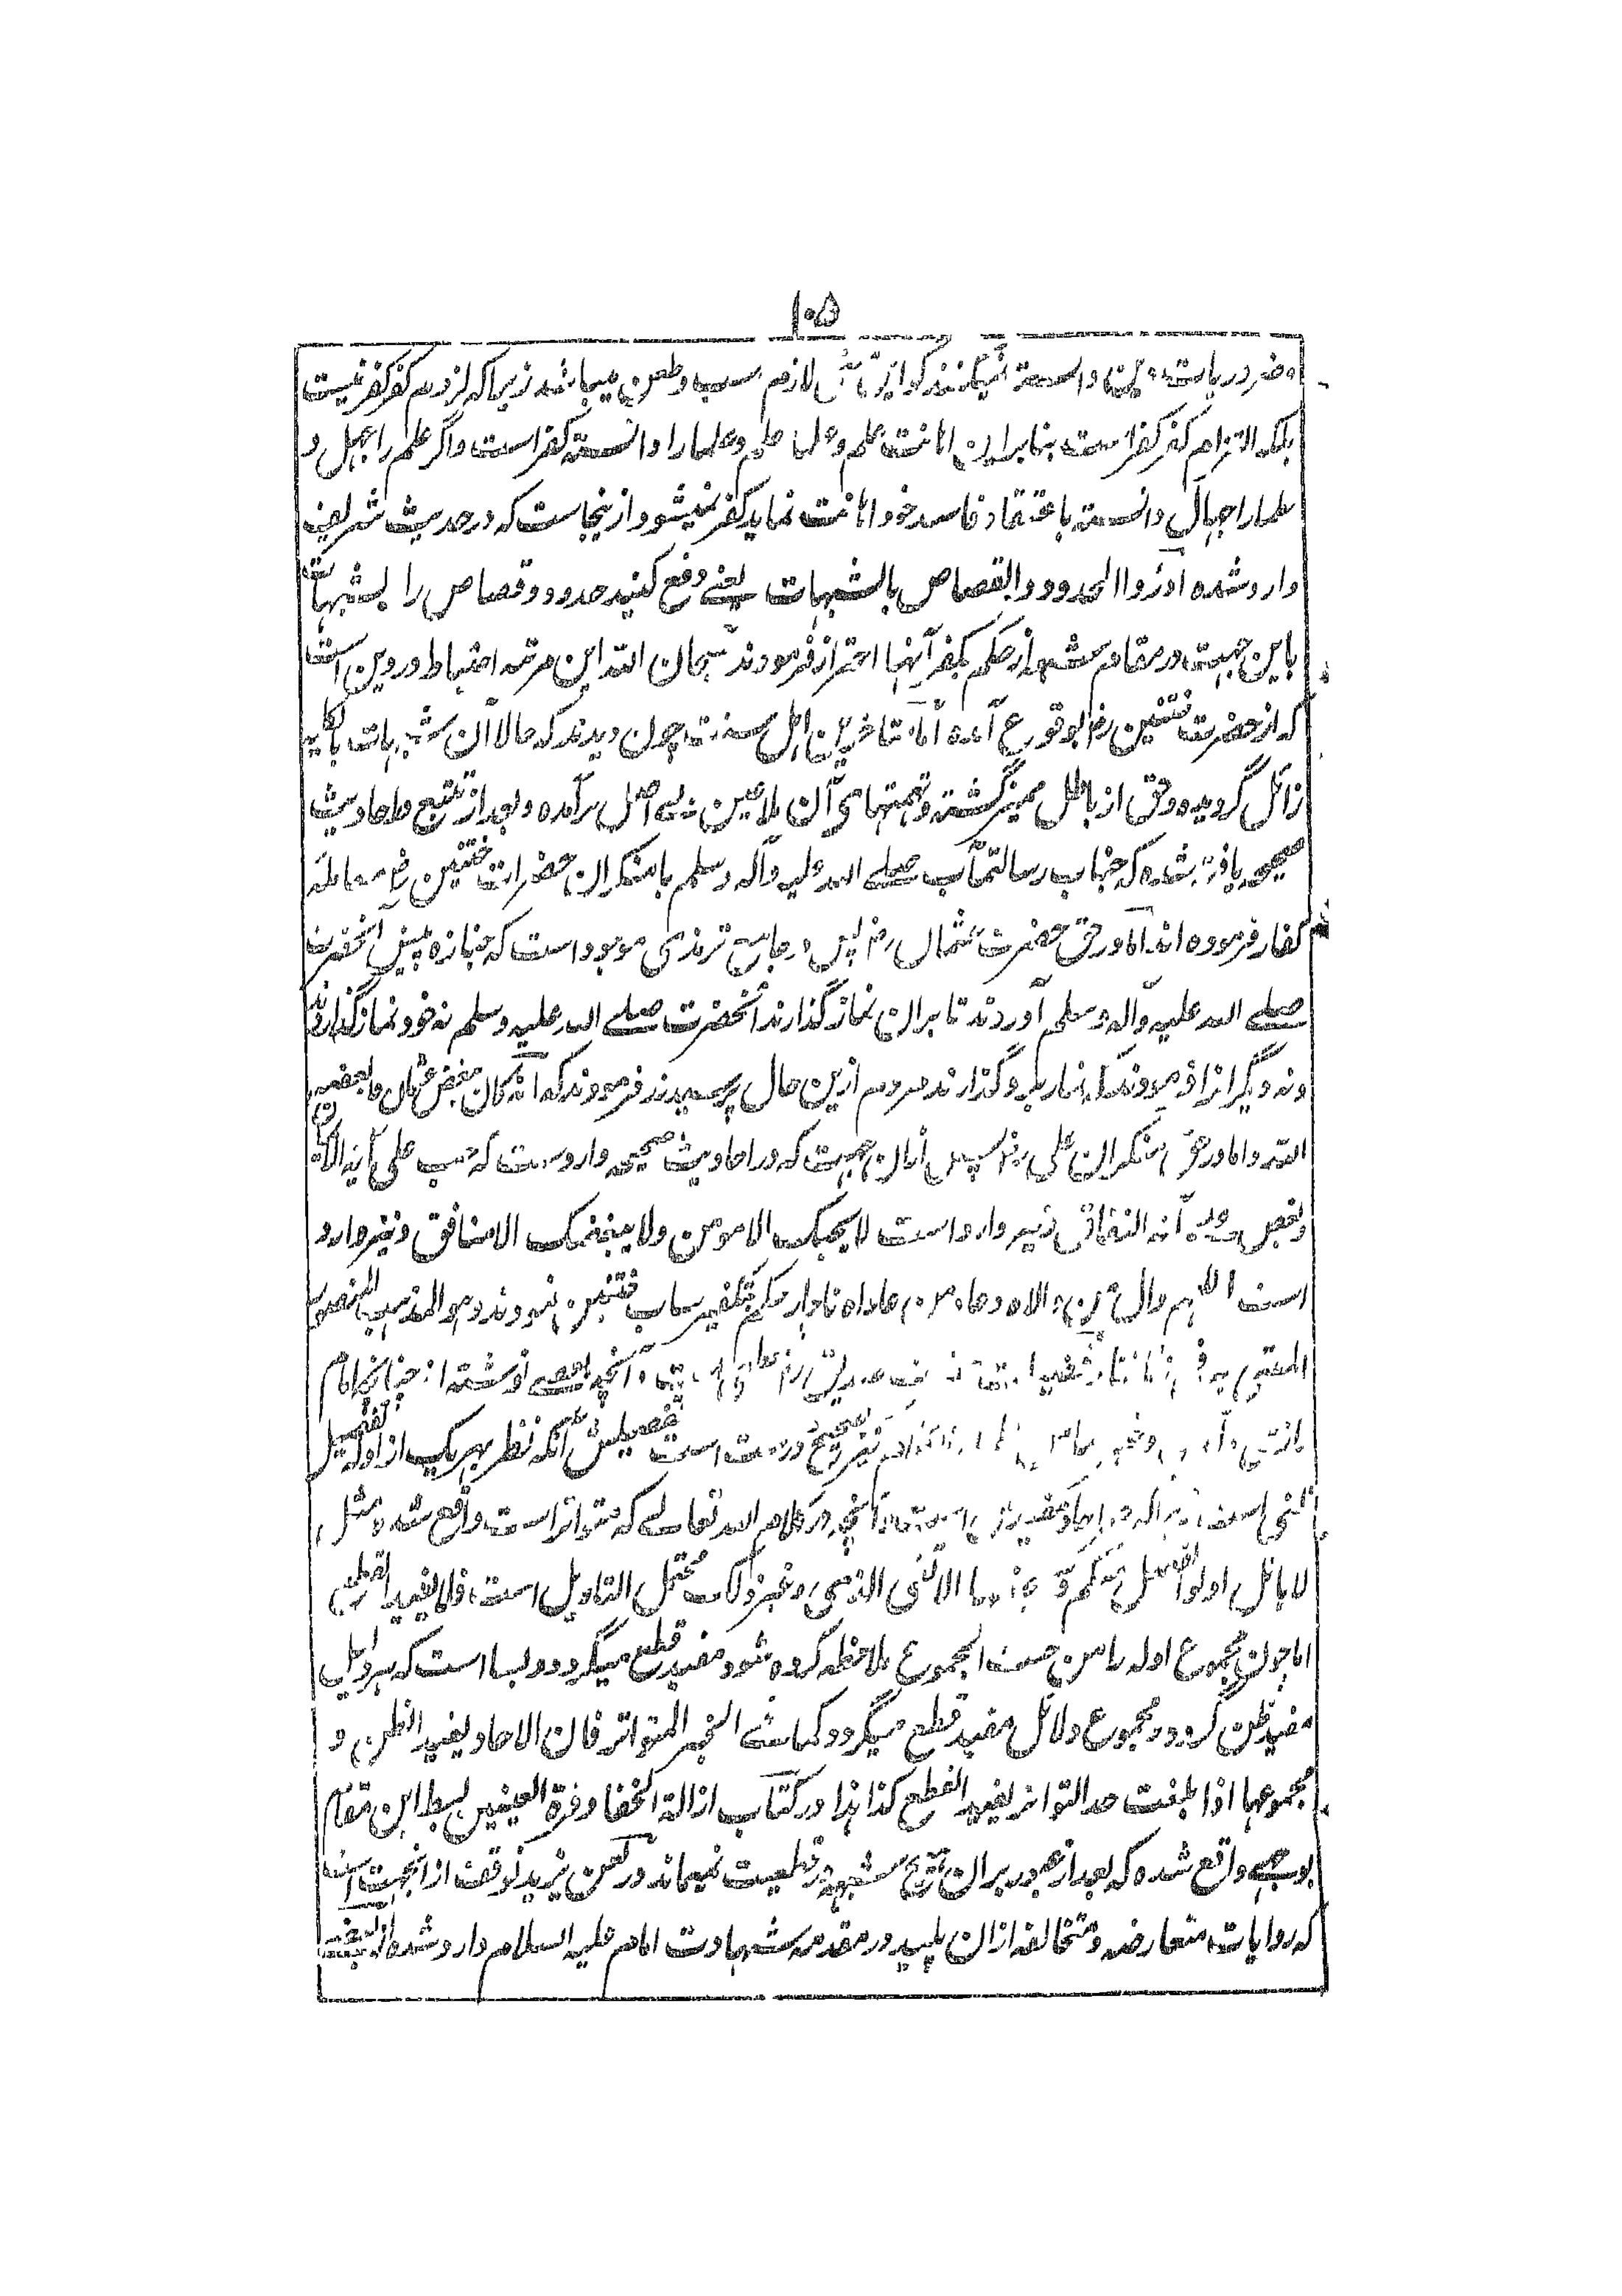 ۱۰۵
ضروریات دین دانسته نمیکنند گو ازین لازم سب وطعن میباشد زیراکه لزوم کفر کفر نیست
بلکه التزام کفر کفر است بنابراین اهانت علم وعلما علم وعلما را دانسته کفر است واگر علم را جهل و
علما را جهال دانسته باعتقاد فاسد خود اهانت نماید کفر نمیشود وازینجاست که در حدیث شریف
وارد شده ادرؤا الحدود والقصاص بالشبهات یعنے دفع کنید حدود وقصاص را بشبهات
باین جهت در مقام شبهه از حکم بکفر آنها احتراز فرمودند سبحان الله این مرتبه احتیاط در دین است
که از حضرت ختنین رض بوقوع آمده اما متاخرین اهل سنت چون دیدند که حالا آن شبهات بالکلیه
زائل گردیده وحق از باطل ممیز گشته وتهمتهای آن ملاعین بے اصل برآمده وبعد از تتبع واحادیث
صحیحه یافته شده که جناب رسالتمآب صلے الله علیه وآله وسلم با منکران حضرات ختنین رض معامله
کفار فرموده اند اما در حق حضرت عثمان رض پس در جامع ترمذی موجود است که جنازه پیش آنحضرت
صلے الله علیه وآله وسلم آوردند تا بران نماز گذارند آنحضرت صلے الله علیه وسلم نه خود نماز گذاردند
ونه دیگرانرا فرمودند که نماز برو گذارند مردم ازین حال پرسیدند فرمودند که انه کان یبغض عثمان فابغضه
الله واما در حق منکران علی رض پس ازان جهت که در احادیث صحیحه وارد است که حب علی آیة الایمان
وبغض علی آیة النفاق نیز وارد است لا یحبک الا مومن ولا یبغضک الا منافق ونیز وارد
است اللهم وال من والاه وعاد من عاداه ناچار حکم بتکفیر ساب ختنین نمودند وهو المذهب المنصور
المفتی به فی زماننا آنچه بعضے نوشته اند چنانچه امام
درست است تفصیلش آنکه نظر بهریک از ادلهٔ تفضیل
در کلام الله تعالے که متواتر است واقع شده مثل
لا یاتل اولوا الفضل منکم و سیجنبها الاتقی الذی وغیر ذلک محتمل التاویل است فلا یفید القطع
اما چون مجموع ادله را من حیث المجموع ملاحظه کرده شود مفید قطع میگردد وبسا است که هر دلیل
مفید ظن گردد ومجموع دلائل مفید قطع میگردد کما فے الخبر المتواتر فان الاحاد یفید الظن و
مجموعها اذا بلغت حد التواتر یفید القطع کذا هذا در کتاب ازالة الخفا وقرة العینین بسط این مقام
بوجهے واقع شده که بعد از عبور بران هیچ شبهه در قطعیت نمیماند در لعن یزید توقف ازان جهت است
که روایات متعارضه ومتخالفه ازان پلید در مقدمه شهادت امام علیه السلام وارد شده از بعضے